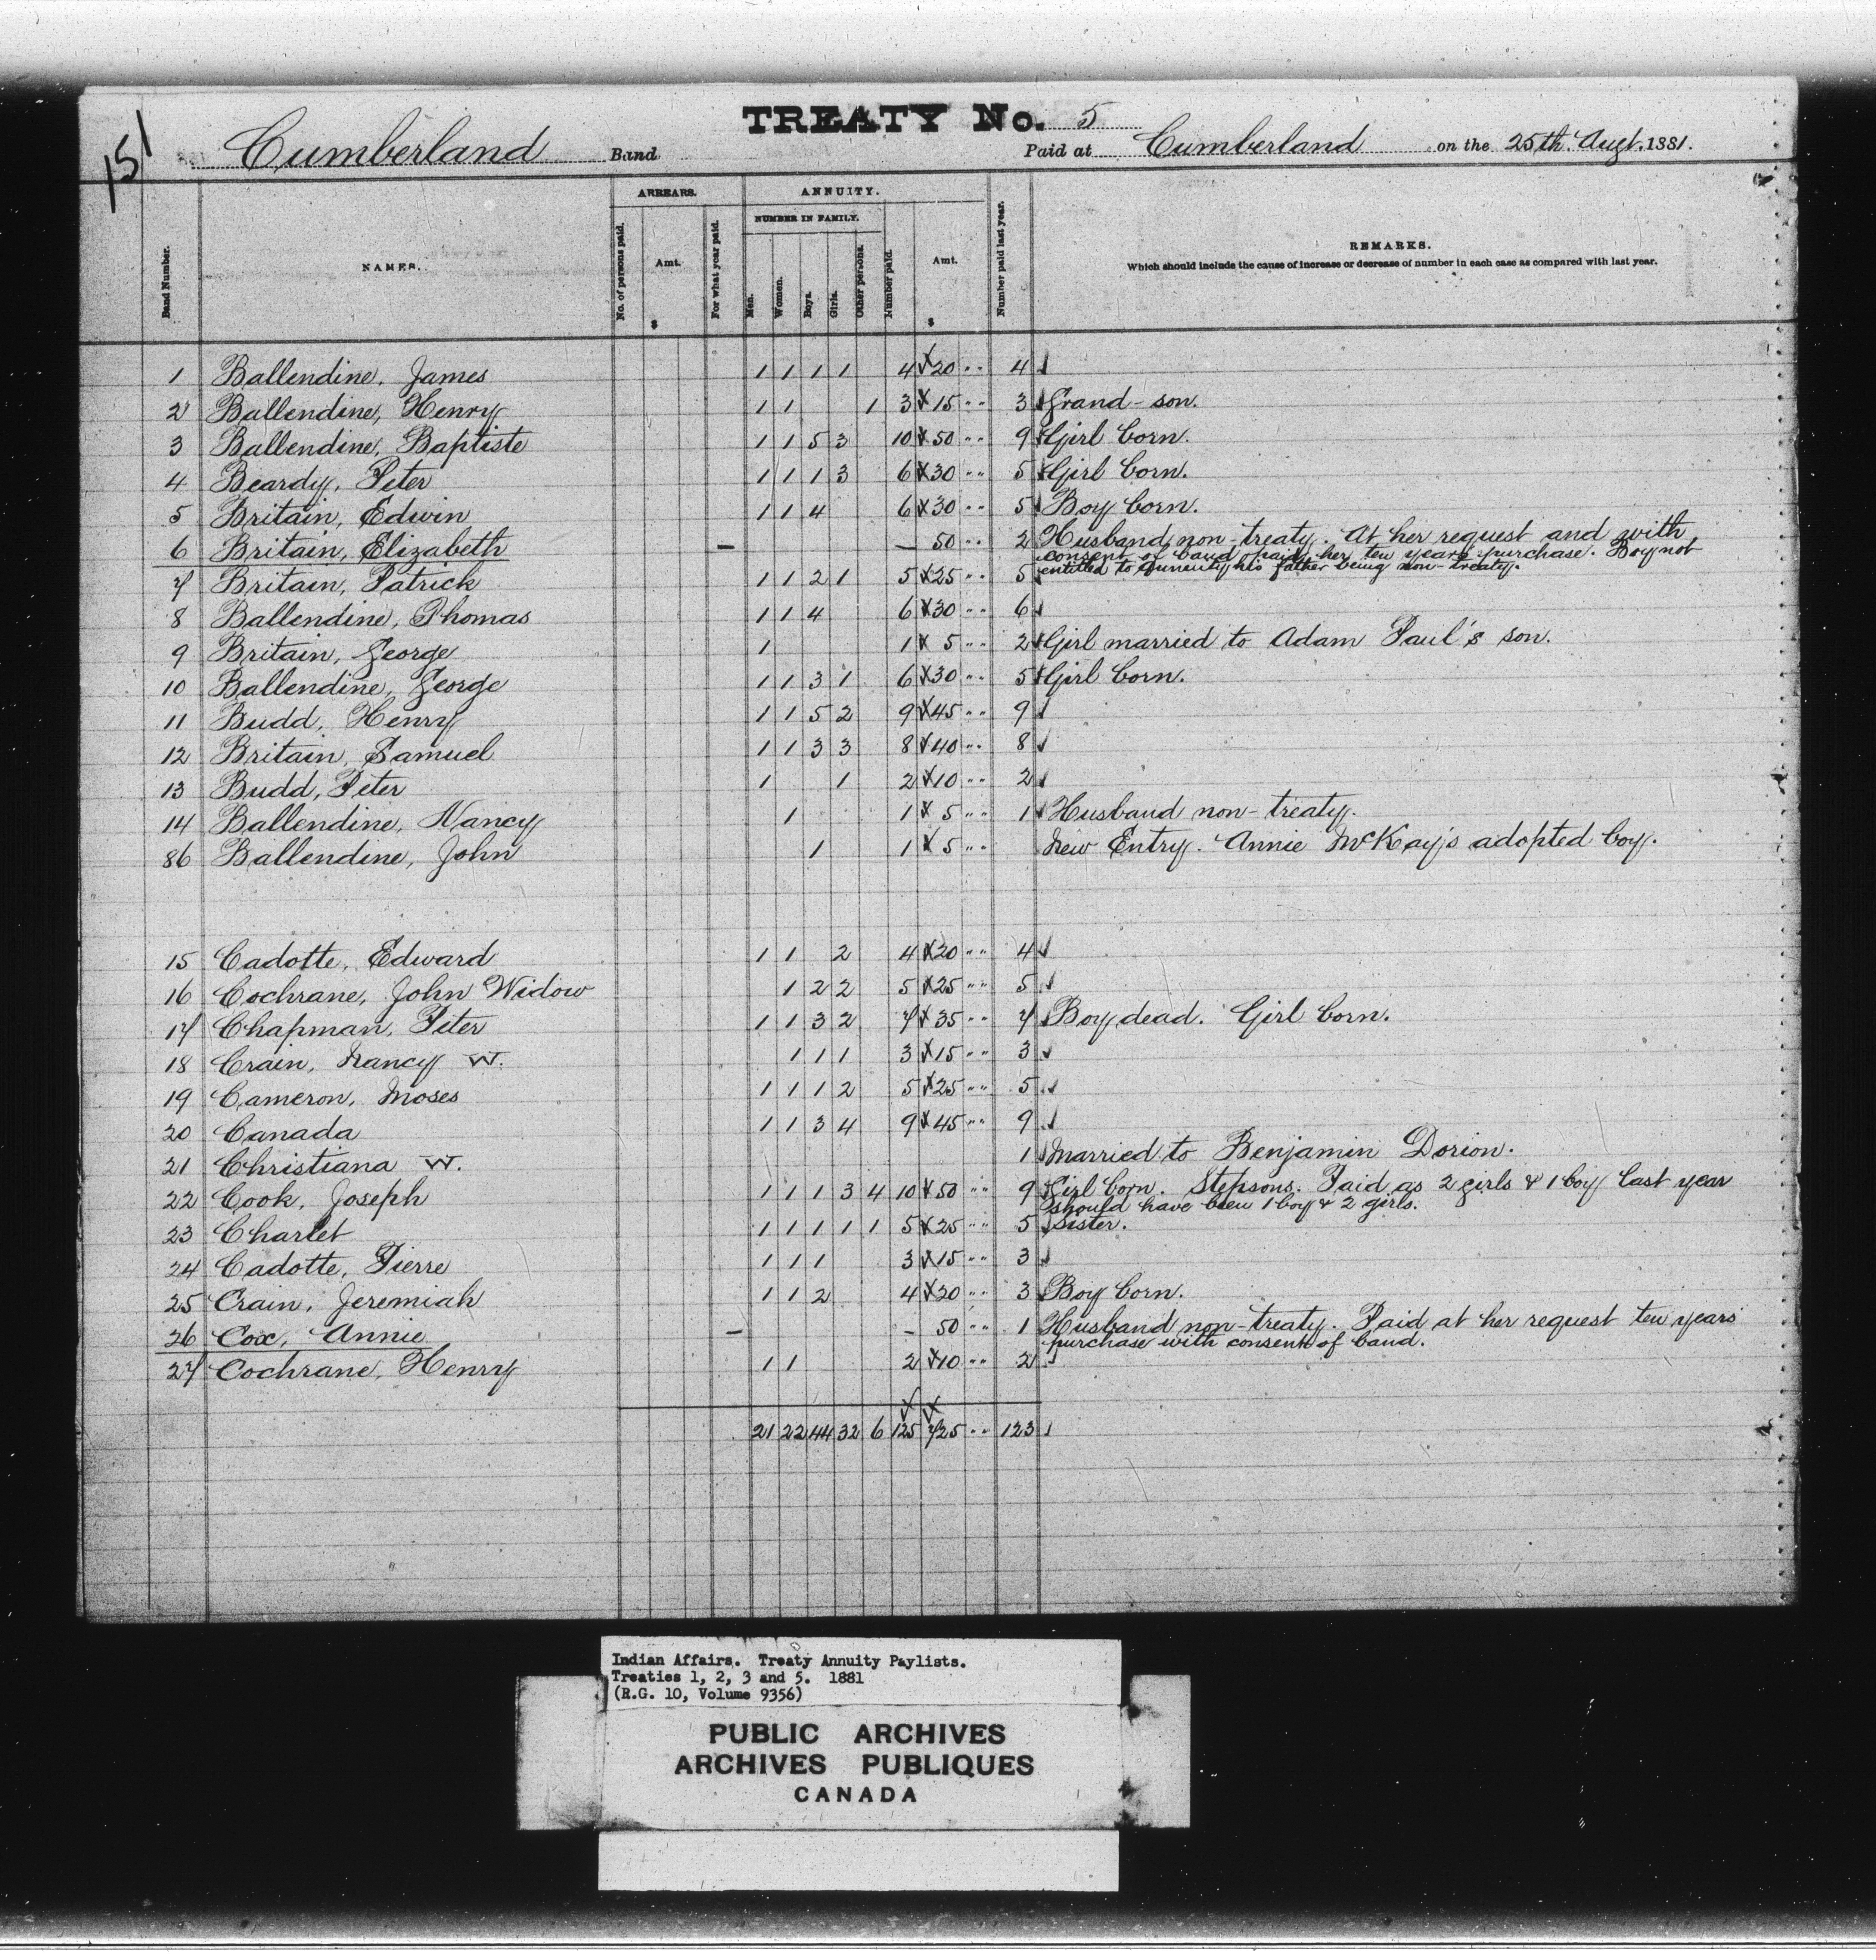 151
TREATY No. 5
Cumberland Band Paid at Cumberland on the 25th Augt. 1881.
Band Number. NAMES. ARREARS. No. of persons paid. Amt. $ For what year paid. ANNUITY. NUMBER IN FAMILY. Men. Women. Boys. Girls. Other persons. Number paid. Amt. $ Number paid last year. REMARKS.
Which should include the cause of increase or decrease of number in each case as compared with last year.
1 Ballendine, James 1 1 1 1 4 20 " 4
2 Ballendine, Henry 1 1 1 3 15 " 3 Grand-son.
3 Ballendine, Baptiste 1 1 5 3 10 50 " 9 Girl born.
4 Beardy, Peter 1 1 1 3 6 30 " 5 Girl born.
5 Britain, Edwin 1 1 4 6 30 " 5 Boy born.
6 Britain, Elizabeth — — 50 " 2 Husband non-treaty. At her request and with
consent of band paid her ten years purchase. Boy not
entitled to annuity his father being non-treaty.
7 Britain, Patrick 1 1 2 1 5 25 " 5
8 Ballendine, Thomas 1 1 4 6 30 " 6
9 Britain, George 1 1 5 " 2 Girl married to Adam Paul's son.
10 Ballendine, George 1 1 3 1 6 30 " 5 Girl born.
11 Budd, Henry 1 1 5 2 9 45 " 9
12 Britain, Samuel 1 1 3 3 8 40 " 8
13 Budd, Peter 1 1 2 10 " 2
14 Ballendine, Nancy 1 1 5 " 1 Husband non-treaty.
86 Ballendine, John 1 1 5 " New Entry. Annie McKay's adopted boy.
15 Cadotte, Edward 1 1 2 4 20 " 4
16 Cochrane, John Widow 1 2 2 5 25 " 5
17 Chapman, Peter 1 1 3 2 7 35 " 7 Boy dead. Girl born.
18 Crain, Nancy W. 1 1 1 3 15 " 3
19 Cameron, Moses 1 1 1 2 5 25 " 5
20 Canada 1 1 3 4 9 45 " 9
21 Christiana W. 1 Married to Benjamin Dorion.
22 Cook, Joseph 1 1 1 3 4 10 50 " 9 Girl born. Stepsons. Paid as 2 girls & 1 boy last year
should have been 1 boy & 2 girls.
23 Charlet 1 1 1 1 1 5 25 " 5 Sister.
24 Cadotte, Pierre 1 1 1 3 15 " 3
25 Crain, Jeremiah 1 1 2 4 20 " 3 Boy born.
26 Cox, Annie — — 50 " 1 Husband non-treaty. Paid at her request ten years
purchase with consent of band.
27 Cochrane, Henry 1 1 2 10 " 2
21 22 44 32 6 125 725 " 123
Indian Affairs. Treaty Annuity Paylists.
Treaties 1, 2, 3 and 5. 1881
(R.G. 10, Volume 9356)
PUBLIC ARCHIVES
ARCHIVES PUBLIQUES
CANADA